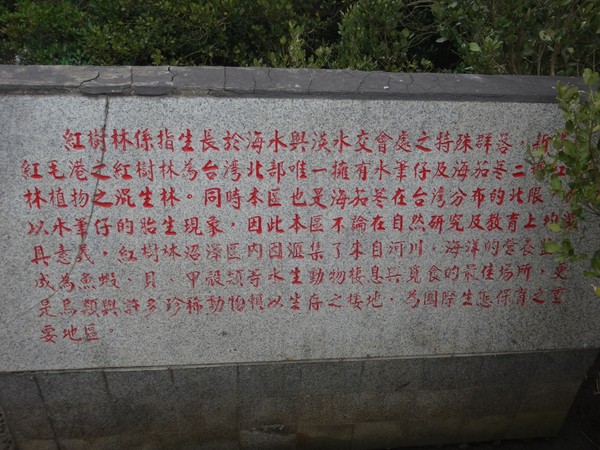 紅樹林係指生長於海水與淡水交會處之特殊群落，新
紅毛港之紅樹林為台灣北部唯一擁有水筆仔及海茄苳二種紅
林植物之混生林。同時本區也是海茄苳在台灣分布的北限
以水筆仔的胎生現象，因此本區不論在自然研究及教育上
具意義，紅樹林沼澤區內因滙集了來自河川、海洋的營養
成為魚蝦、貝、甲殼類等水生動物棲息與覓食的最佳場所，更
是鳥類與許多珍稀動物賴以生存之棲地，為國際生態保育之重
要地區。